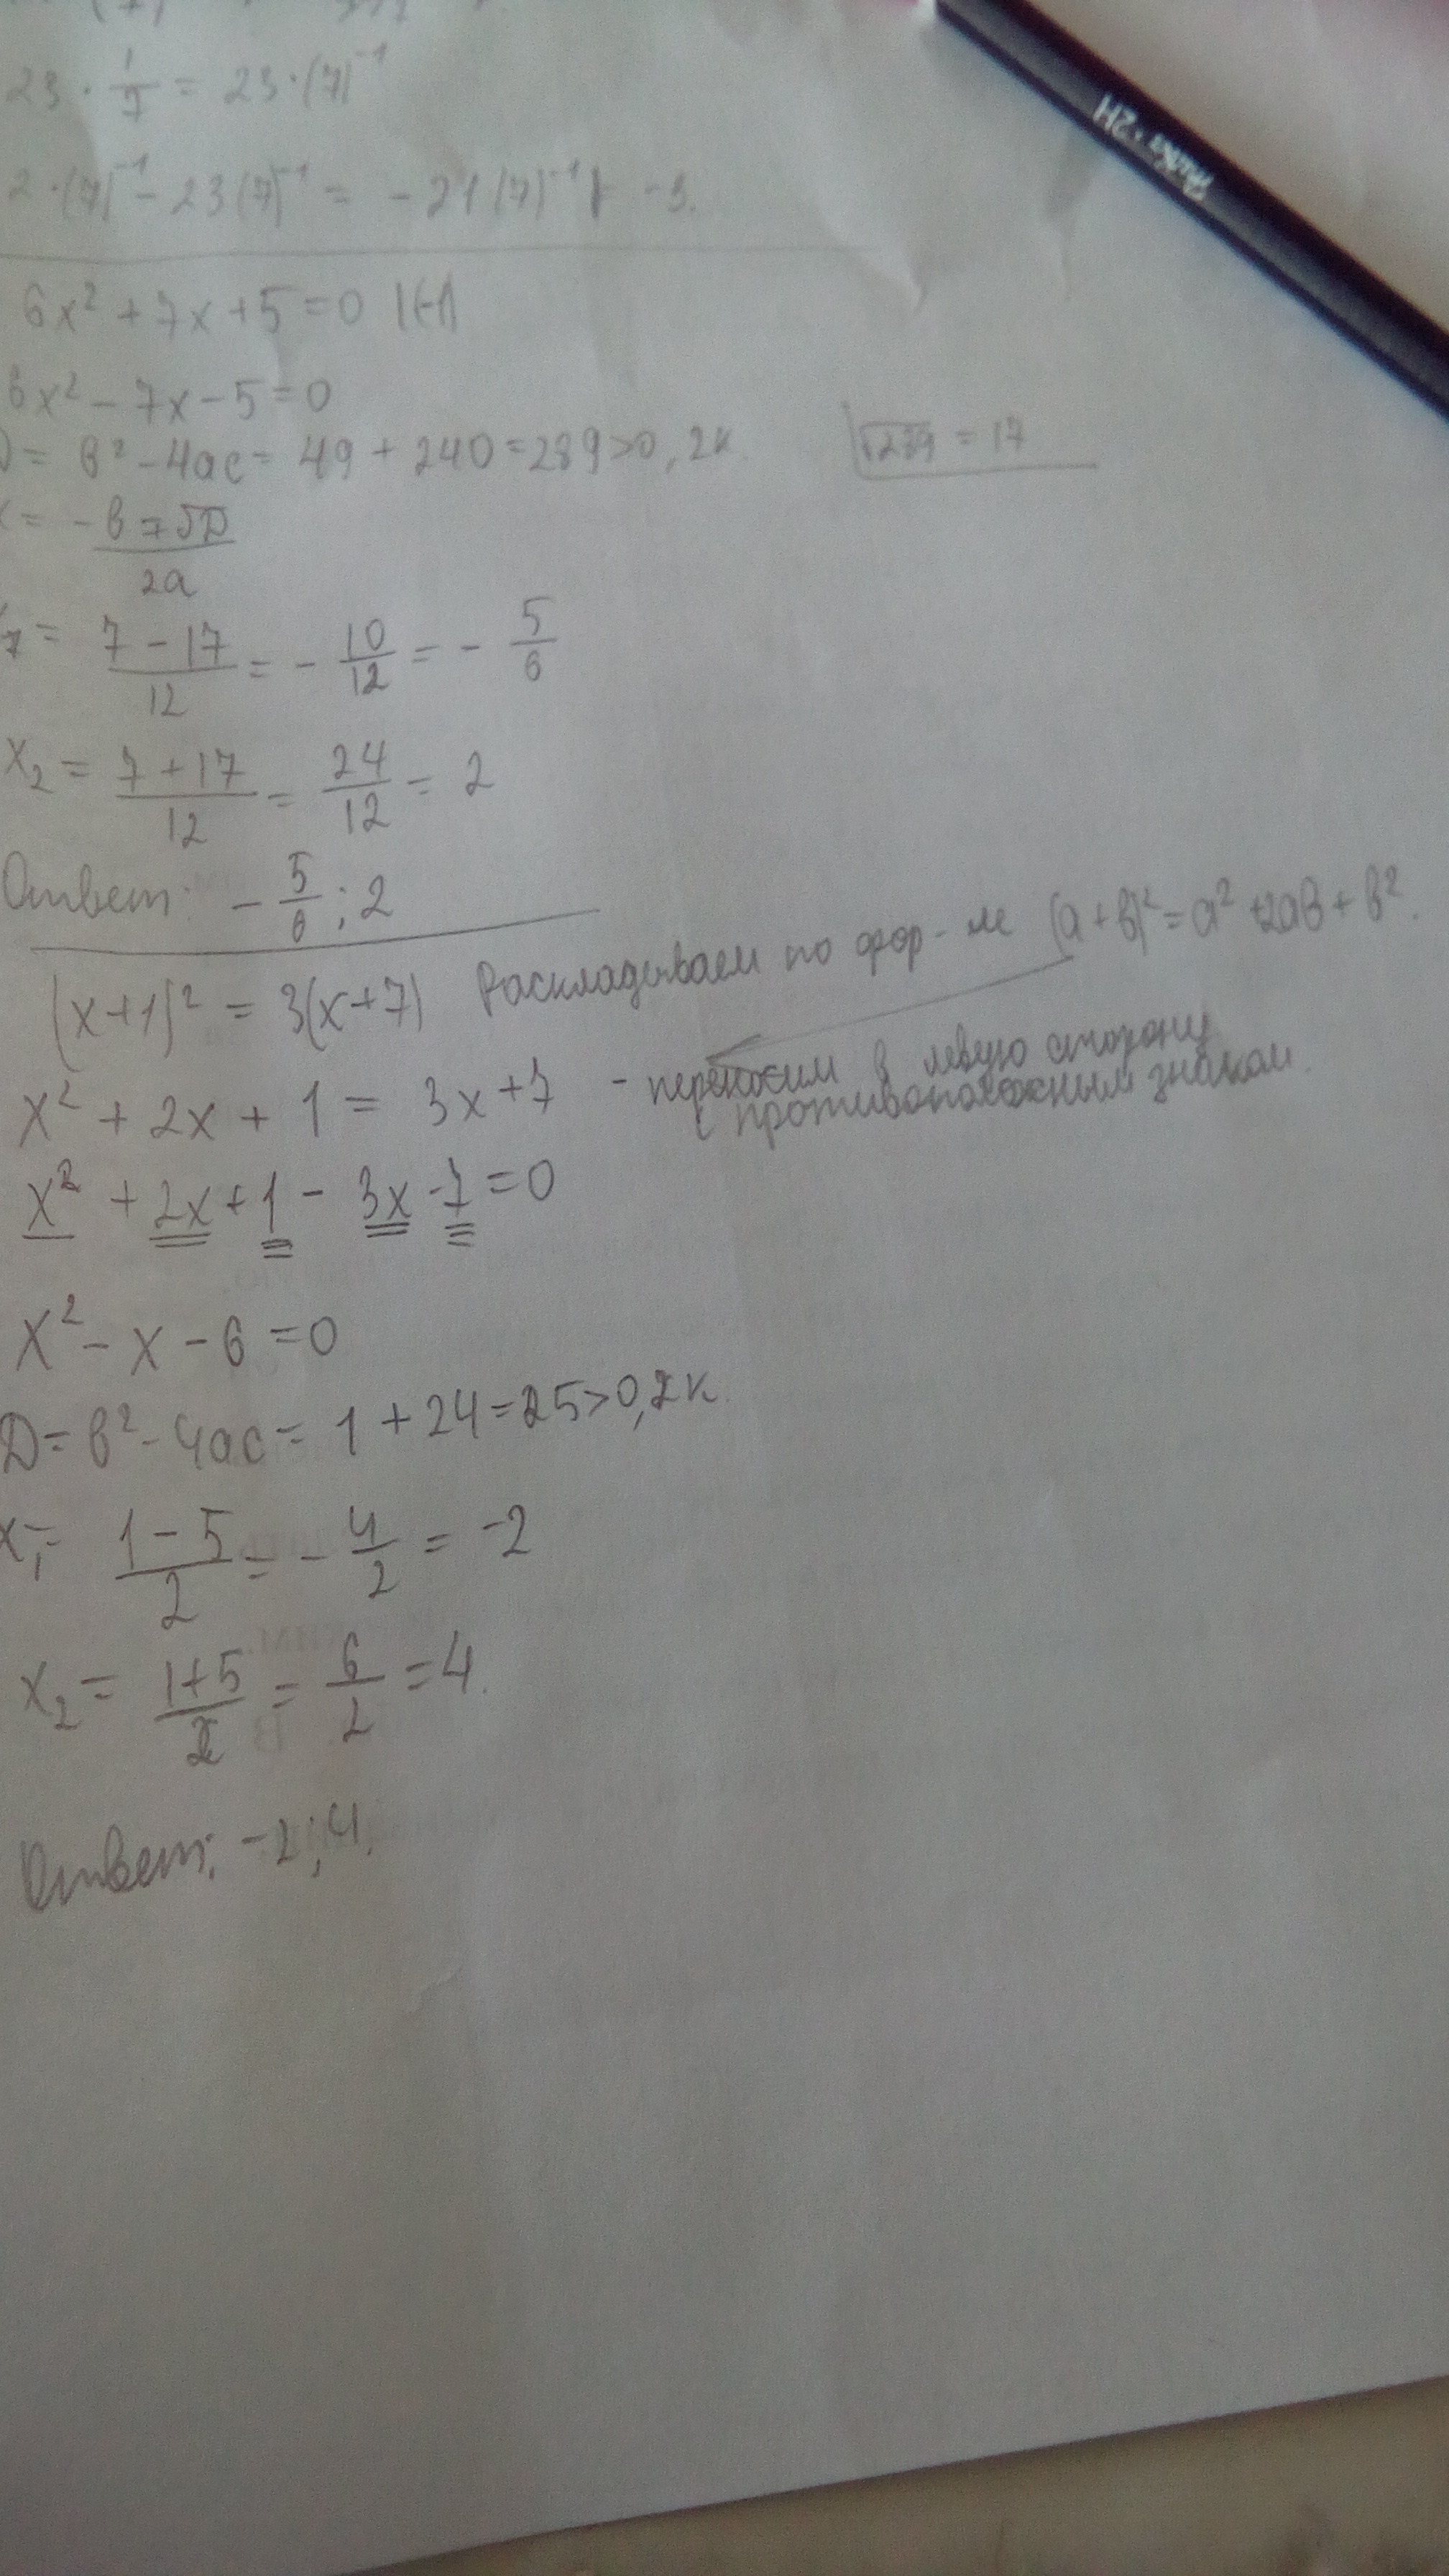 23 · 1/7 = 23·(7)⁻¹
2·(7)⁻¹ - 23(7)⁻¹ = -21(7)⁻¹ -3.
6x² + 7x + 5 = 0 |(-1)
6x² - 7x - 5 = 0
D = в² - 4ас = 49 + 240 = 289 > 0, 2к. √289 = 17
x = (-в ∓ √D)/2a
= (7 - 17)/12 = - 10/12 = - 5/6
x₂ = (7 + 17)/12 = 24/12 = 2
Ответ: - 5/6 ; 2
(x+1)² = 3(x+7) Раскладываем по фор-ле (а + в)² = а² + 2ав + в².
x² + 2x + 1 = 3x + 7 - переносим в левую сторону
с противоположным знаком.
x² + 2x + 1 - 3x - 7 = 0
x² - x - 6 = 0
Д = в² - 4ас = 1 + 24 = 25 > 0, 2к.
x₁ = (1 - 5)/2 = - 4/2 = -2
x₂ = (1+5)/2 = 6/2 = 4.
Ответ: -2; 4.
2H